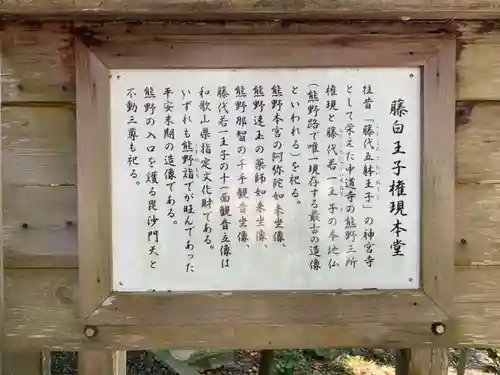 藤白王子権現本堂
往昔「藤代五躰王子」の神宮寺
として栄えた中道寺の熊野三所
権現と藤代若一王子の本地仏
（熊野路で唯一現存する最古の造像
といわれる）を祀る。
熊野本宮の阿弥陀如来坐像
熊野速玉の薬師如来坐像、
熊野那智の千手観音坐像、
藤代若一王子の十一面観音立像は
和歌山県指定文化財である。
いずれも熊野詣でが旺んであった
平安末期の造像である。
熊野の入口を護る毘沙門天と
不動三尊も祀る。